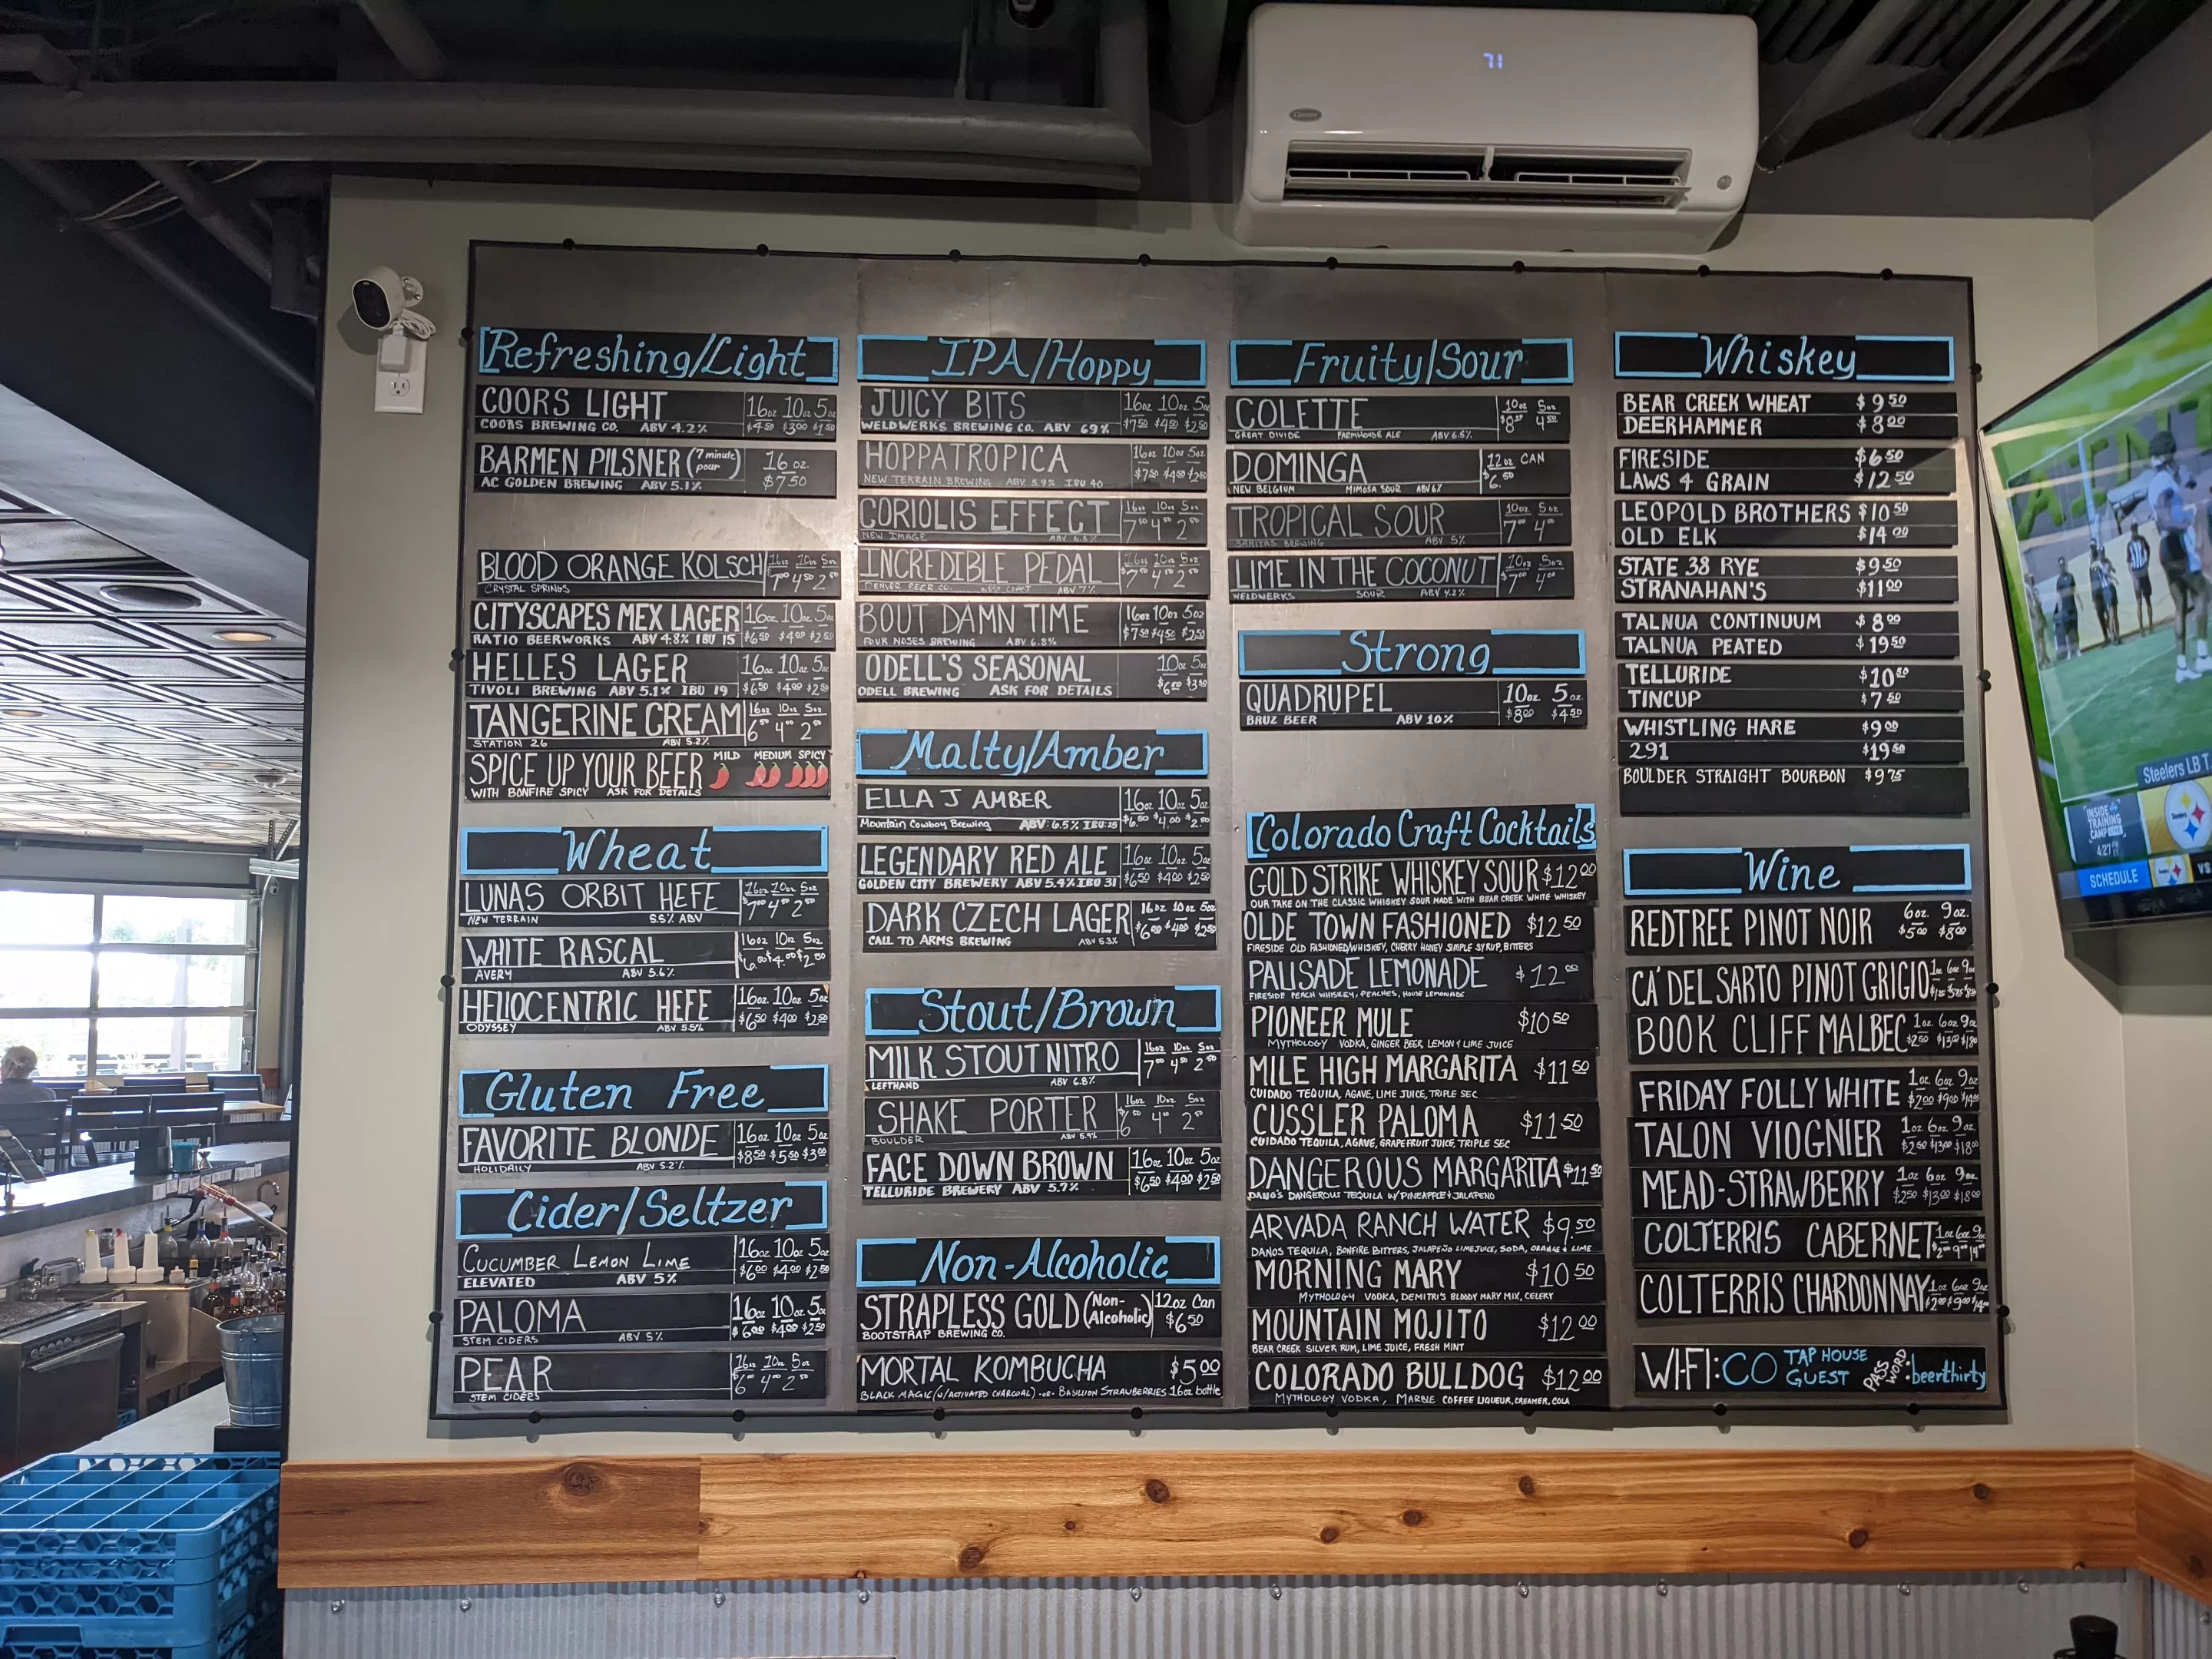 71
Carrier
Refreshing/Light
COORS LIGHT 16oz 10oz 5oz
COORS BREWING CO. ABV 4.2% $4.50 $3.00 $1.50
BARMEN PILSNER (7 minute pour) 16 oz.
AC GOLDEN BREWING ABV 5.1% $7.50
BLOOD ORANGE KOLSCH 16oz 10oz 5oz
CRYSTAL SPRINGS $7.00 4.50 2.50
CITYSCAPES MEX LAGER 16oz 10oz 5oz
RATIO BEERWORKS ABV 4.8% IBU 15 $6.50 $4.00 $2.50
HELLES LAGER 16oz 10oz 5oz
TIVOLI BREWING ABV 5.1% IBU 19 $6.50 $4.00 $2.50
TANGERINE CREAM 16oz 10oz 5oz
STATION 26 ABV 5.2% 6.50 4.00 2.50
SPICE UP YOUR BEER MILD MEDIUM SPICY
WITH BONFIRE SPICY ASK FOR DETAILS
Wheat
LUNAS ORBIT HEFE 16oz 10oz 5oz
NEW TERRAIN 5.5% ABV $7.00 4.50 2.50
WHITE RASCAL 16oz 10oz 5oz
AVERY ABV 5.6% $6.00 $4.00 $2.50
HELIOCENTRIC HEFE 16oz 10oz 5oz
ODYSSEY ABV 5.5% $6.50 $4.00 $2.50
Gluten Free
FAVORITE BLONDE 16oz 10oz 5oz
HOLIDAILY ABV 5.2% $8.50 $5.50 $3.00
Cider/Seltzer
CUCUMBER LEMON LIME 16oz 10oz 5oz
ELEVATED ABV 5% $6.00 $4.00 $2.50
PALOMA 16oz 10oz 5oz
STEM CIDERS ABV 5% $6.00 $4.00 $2.50
PEAR 16oz 10oz 5oz
STEM CIDERS $6.00 4.00 2.50
IPA/Hoppy
JUICY BITS 16oz 10oz 5oz
WELDWERKS BREWING CO. ABV 69% $7.50 $4.50 $2.50
HOPPATROPICA 16oz 10oz 5oz
NEW TERRAIN BREWING ABV 5.9% IBU 40 $7.50 $4.50 $2.50
CORIOLIS EFFECT 16oz 10oz 5oz
NEW IMAGE 7.50 4.50 2.50
INCREDIBLE PEDAL 16oz 10oz 5oz
DENVER BEER CO. WEST COAST ABV 7% $7.00 4.50 2.50
BOUT DAMN TIME 16oz 10oz 5oz
FOUR NOSES BREWING ABV 6.8% $7.50 $4.50 $2.50
ODELL'S SEASONAL 10oz 5oz
ODELL BREWING ASK FOR DETAILS $6.00 $3.50
Malty/Amber
ELLA J AMBER 16oz 10oz 5oz
Mountain Cowboy Brewing ABV: 6.5% IBU:25 $6.50 $4.00 $2.50
LEGENDARY RED ALE 16oz 10oz 5oz
GOLDEN CITY BREWERY ABV 5.4% IBU 31 $6.50 $4.00 $2.50
DARK CZECH LAGER 16oz 10oz 5oz
CALL TO ARMS BREWING ABV 5.3% $6.00 $4.00 $2.50
Stout/Brown
MILK STOUT NITRO 16oz 10oz 5oz
LEFTHAND ABV 6.8% 7.00 4.50 2.50
SHAKE PORTER 16oz 10oz 5oz
BOULDER ABV 5.9% $6.50 4.00 2.50
FACE DOWN BROWN 16oz 10oz 5oz
TELLURIDE BREWERY ABV 5.7% $6.50 $4.00 $2.50
Non-Alcoholic
STRAPLESS GOLD (Non-Alcoholic) 12oz Can
BOOTSTRAP BREWING CO. $6.50
MORTAL KOMBUCHA $5.00
BLACK MAGIC (w/ACTIVATED CHARCOAL) -or- BASILLION STRAWBERRIES 16oz bottle
Fruity/Sour
COLETTE 10oz 5oz
GREAT DIVIDE FARMHOUSE ALE ABV 6.5% 4.50
DOMINGA 12oz CAN
NEW BELGIUM MIMOSA SOUR ABV 6% $6.50
TROPICAL SOUR 10oz 5oz
SANITAS BREWING ABV 5% 7.00 4.00
LIME IN THE COCONUT 10oz 5oz
WELDWERKS SOUR ABV 4.2% $7.00 4.00
Strong
QUADRUPEL 10oz. 5oz.
BRUZ BEER ABV 10% $8.00 $4.50
Colorado Craft Cocktails
GOLD STRIKE WHISKEY SOUR $12.00
OUR TAKE ON THE CLASSIC WHISKEY SOUR MADE WITH BEAR CREEK WHITE WHISKEY
OLDE TOWN FASHIONED $12.50
FIRESIDE OLD FASHIONED/WHISKEY, CHERRY HONEY SIMPLE SYRUP, BITTERS
PALISADE LEMONADE $12.00
FIRESIDE PEACH WHISKEY, PEACHES, HOUSE LEMONADE
PIONEER MULE $10.50
MYTHOLOGY VODKA, GINGER BEER, LEMON & LIME JUICE
MILE HIGH MARGARITA $11.50
CUIDADO TEQUILA, AGAVE, LIME JUICE, TRIPLE SEC
CUSSLER PALOMA $11.50
CUIDADO TEQUILA, AGAVE, GRAPEFRUIT JUICE, TRIPLE SEC
DANGEROUS MARGARITA $11.50
DANO'S DANGEROUS TEQUILA W/ PINEAPPLE & JALAPENO
ARVADA RANCH WATER $9.50
DANOS TEQUILA, BONFIRE BITTERS, JALAPEÑO LIMEJUICE, SODA, ORANGE & LIME
MORNING MARY $10.50
MYTHOLOGY VODKA, DEMITRI'S BLOODY MARY MIX, CELERY
MOUNTAIN MOJITO $12.00
BEAR CREEK SILVER RUM, LIME JUICE, FRESH MINT
COLORADO BULLDOG $12.00
MYTHOLOGY VODKA, MARBLE COFFEE LIQUEUR, CREAMER, COLA
Whiskey
BEAR CREEK WHEAT $9.50
DEERHAMMER $8.00
FIRESIDE $6.50
LAWS 4 GRAIN $12.50
LEOPOLD BROTHERS $10.50
OLD ELK $14.00
STATE 38 RYE $9.50
STRANAHAN'S $11.00
TALNUA CONTINUUM $8.00
TALNUA PEATED $19.50
TELLURIDE $10.50
TINCUP $7.50
WHISTLING HARE $9.00
291 $19.50
BOULDER STRAIGHT BOURBON $9.75
Wine
REDTREE PINOT NOIR 6oz. 9oz.
$5.00 $8.00
CA' DEL SARTO PINOT GRIGIO 1oz 6oz 9oz
BOOK CLIFF MALBEC 1oz 6oz 9oz
$2.50 $13.00 $18.00
FRIDAY FOLLY WHITE 1oz 6oz 9oz
$2.00 $9.00 $14.00
TALON VIOGNIER 1oz 6oz 9oz.
$2.50 $13.00 $18.00
MEAD-STRAWBERRY 1oz 6oz 9oz
$2.50 $13.00 $18.00
COLTERRIS CABERNET 1oz 6oz 9oz
$2.00 $9.00 14.00
COLTERRIS CHARDONNAY 1oz 6oz 9oz
$2.00 $9.00 $14.00
WI-FI: CO TAP HOUSE GUEST PASS WORD: beerthirty
Steelers LB T
INSIDE
TRAINING
CAMP LIVE
4:27 PM ET
Steelers
SCHEDULE VS